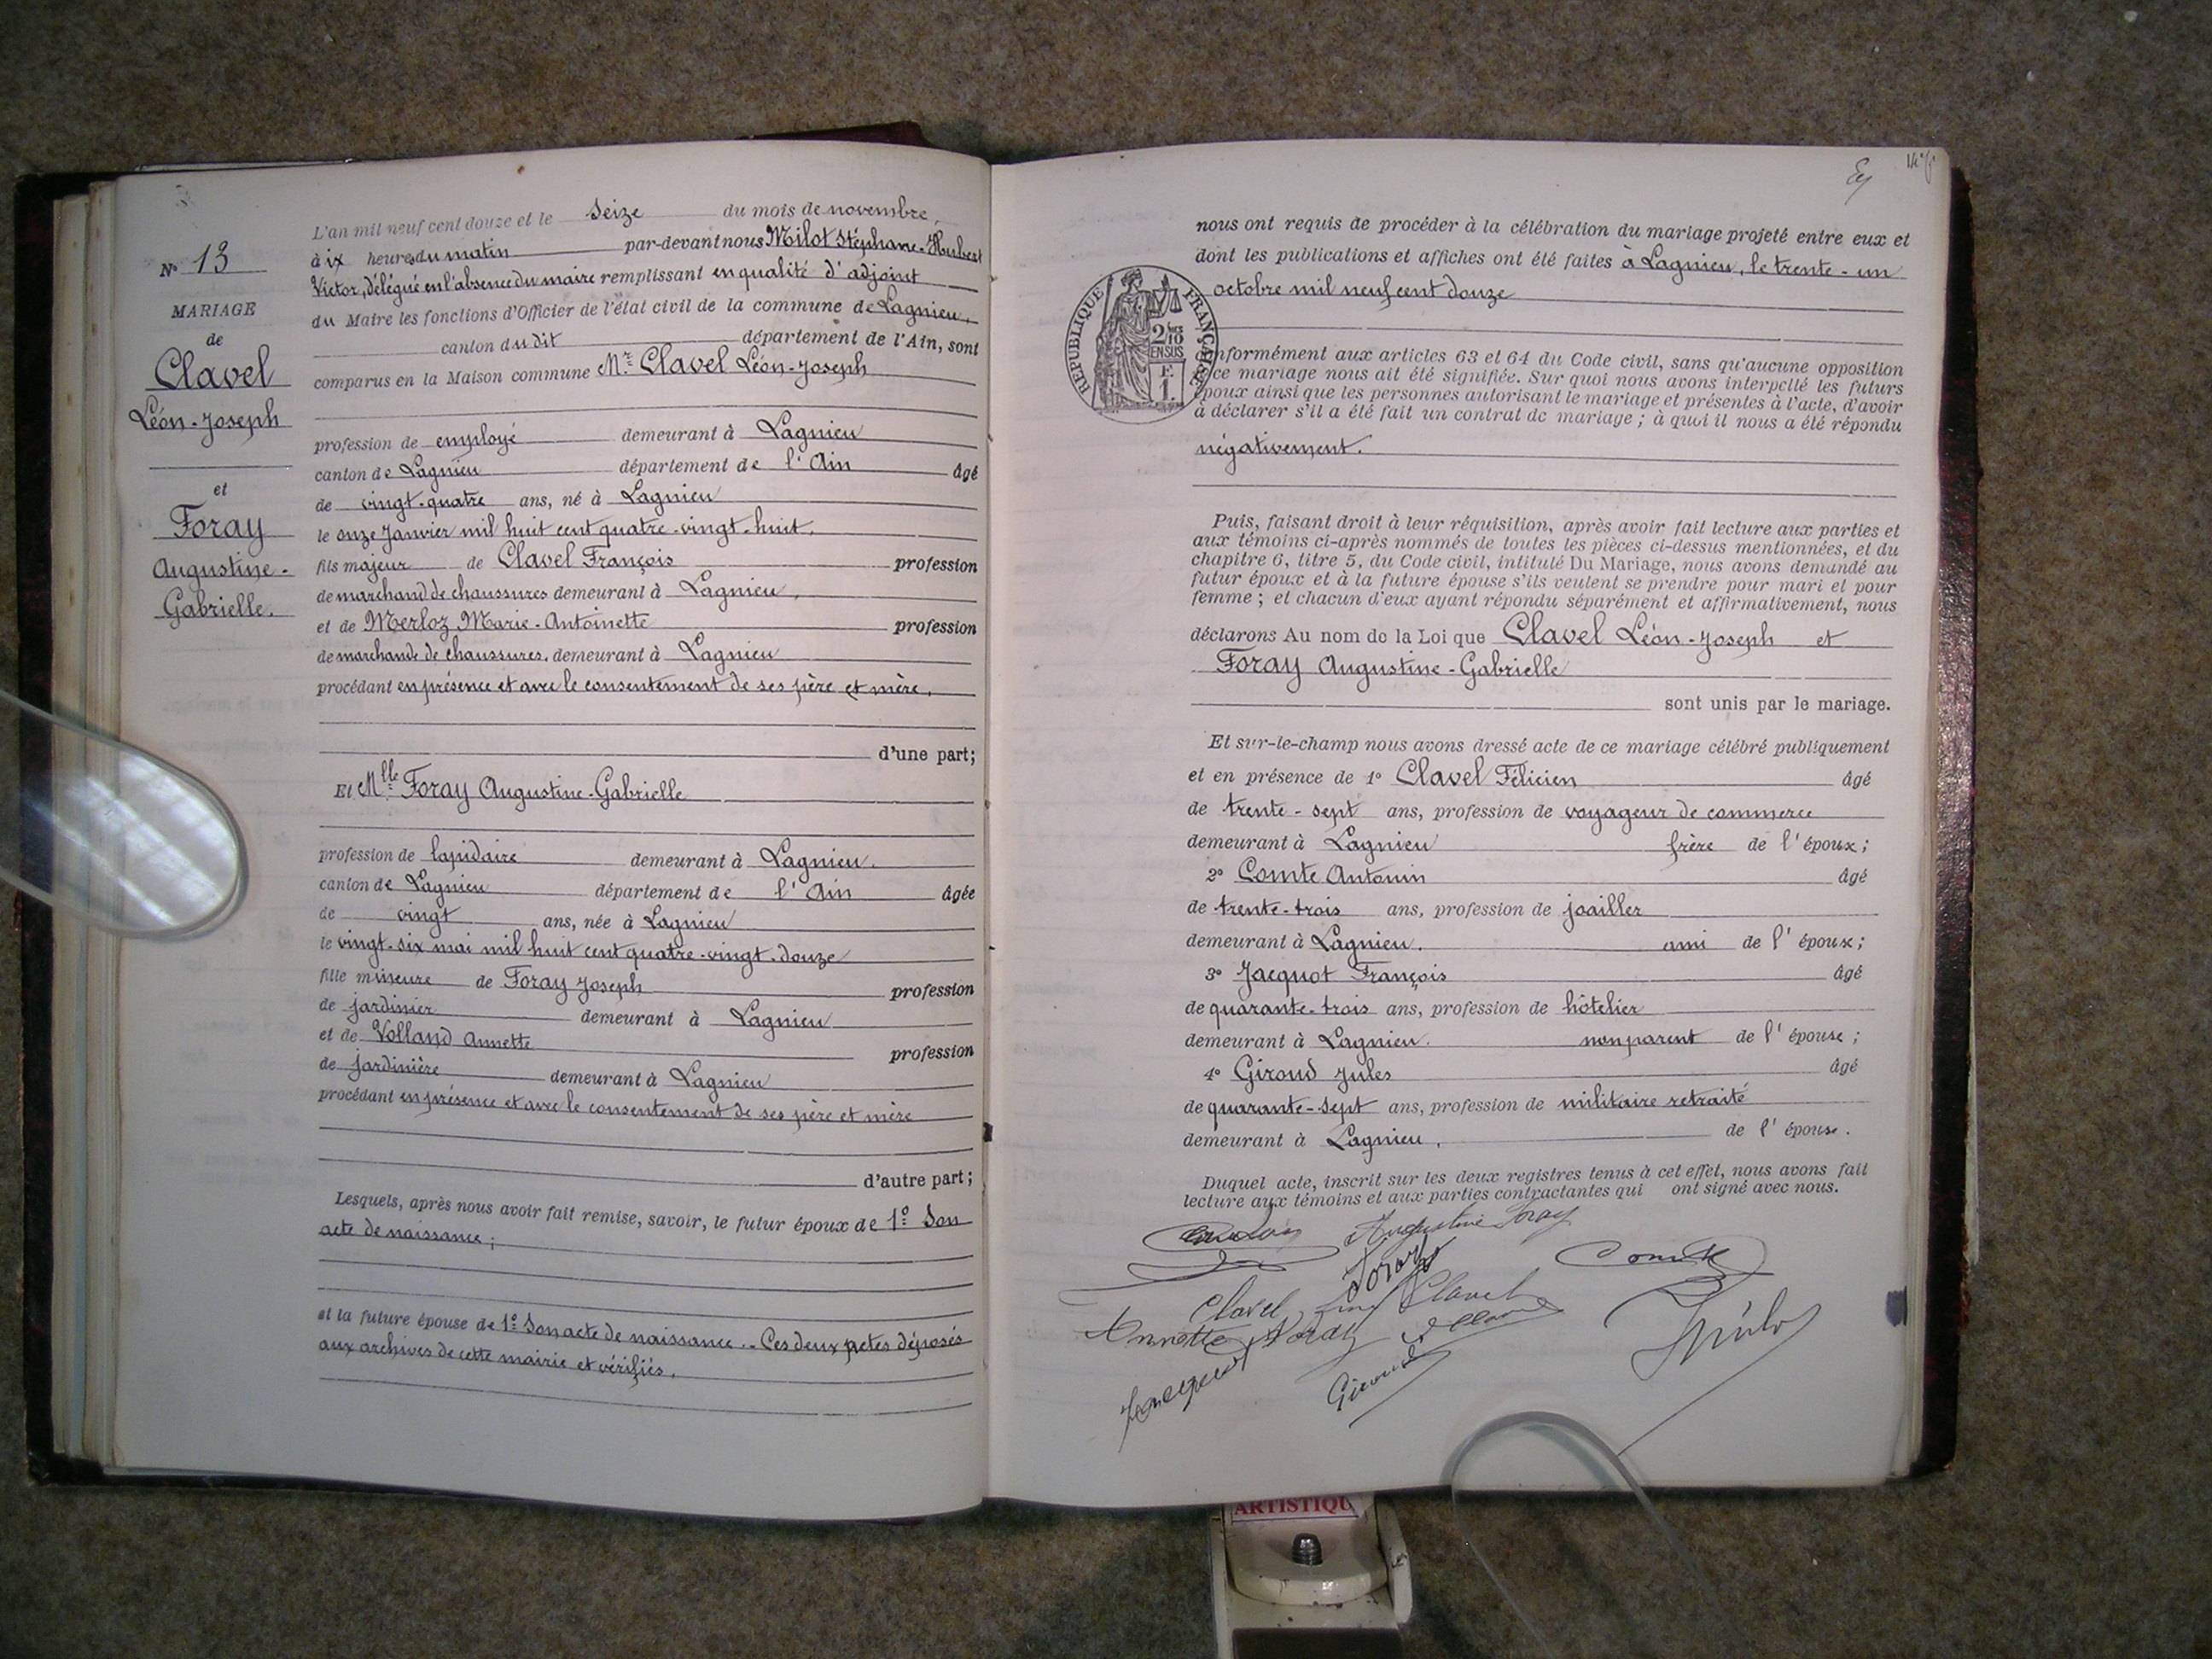 N° 13
MARIAGE
de
Clavel
Léon-Joseph
et
Foray
Augustine-
Gabrielle.
L'an mil neuf cent douze et le seize du mois de novembre,
à ix heures du matin par-devant nous Milot Stéphane-Hubert
Victor, délégué en l'absence du maire remplissant en qualité d'adjoint
du Maire les fonctions d'Officier de l'état civil de la commune de Lagnieu,
canton du dit département de l'Ain, sont
comparus en la Maison commune Mr Clavel Léon-Joseph
profession de employé demeurant à Lagnieu
canton de Lagnieu département de l'Ain âgé
de vingt-quatre ans, né à Lagnieu
le onze Janvier mil huit cent quatre-vingt-huit,
fils majeur de Clavel François profession
de marchand de chaussures demeurant à Lagnieu,
et de Merloz Marie-Antoinette profession
de marchande de chaussures, demeurant à Lagnieu
procédant en présence et avec le consentement de ses père et mère,
d'une part;
Et Mlle Foray Augustine-Gabrielle
profession de lapidaire demeurant à Lagnieu.
canton de Lagnieu département de l'Ain âgée
de vingt ans, née à Lagnieu
le vingt-six mai mil huit cent quatre-vingt-douze
fille mineure de Foray Joseph profession
de jardinier demeurant à Lagnieu
et de Volland Annette profession
de jardinière demeurant à Lagnieu
procédant en présence et avec le consentement de ses père et mère
d'autre part;
Lesquels, après nous avoir fait remise, savoir, le futur époux de 1° Son
acte de naissance;
et la future épouse de 1° Son acte de naissance. - Ces deux actes déposés
aux archives de cette mairie et vérifiés.
nous ont requis de procéder à la célébration du mariage projeté entre eux et
dont les publications et affiches ont été faites à Lagnieu, le trente-un
octobre mil neuf cent douze
RÉPUBLIQUE FRANÇAISE
2/10
EN SUS
F.
1.
nformément aux articles 63 et 64 du Code civil, sans qu'aucune opposition
ce mariage nous ait été signifiée. Sur quoi nous avons interpellé les futurs
époux ainsi que les personnes autorisant le mariage et présentes à l'acte, d'avoir
à déclarer s'il a été fait un contrat de mariage; à quoi il nous a été répondu
négativement.
Puis, faisant droit à leur réquisition, après avoir fait lecture aux parties et
aux témoins ci-après nommés de toutes les pièces ci-dessus mentionnées, et du
chapitre 6, titre 5, du Code civil, intitulé Du Mariage, nous avons demandé au
futur époux et à la future épouse s'ils veulent se prendre pour mari et pour
femme; et chacun d'eux ayant répondu séparément et affirmativement, nous
déclarons Au nom de la Loi que Clavel Léon-Joseph et
Foray Augustine-Gabrielle
sont unis par le mariage.
Et sur-le-champ nous avons dressé acte de ce mariage célébré publiquement
et en présence de 1° Clavel Félicien âgé
de trente-sept ans, profession de voyageur de commerce
demeurant à Lagnieu frère de l'époux;
2° Comte Antonin âgé
de trente-trois ans, profession de joailler
demeurant à Lagnieu. ami de l'époux;
3° Jacquot François âgé
de quarante-trois ans, profession de hôtelier
demeurant à Lagnieu. non parent de l'épouse;
4° Giroud Jules âgé
de quarante-sept ans, profession de militaire retraité
demeurant à Lagnieu, de l'épouse.
Duquel acte, inscrit sur les deux registres tenus à cet effet, nous avons fait
lecture aux témoins et aux parties contractantes qui ont signé avec nous.
Augustine Foray
Foray
Comte
Clavel
Clavel
Annette Foray
Jacquot
Giroud
ARTISTIQU